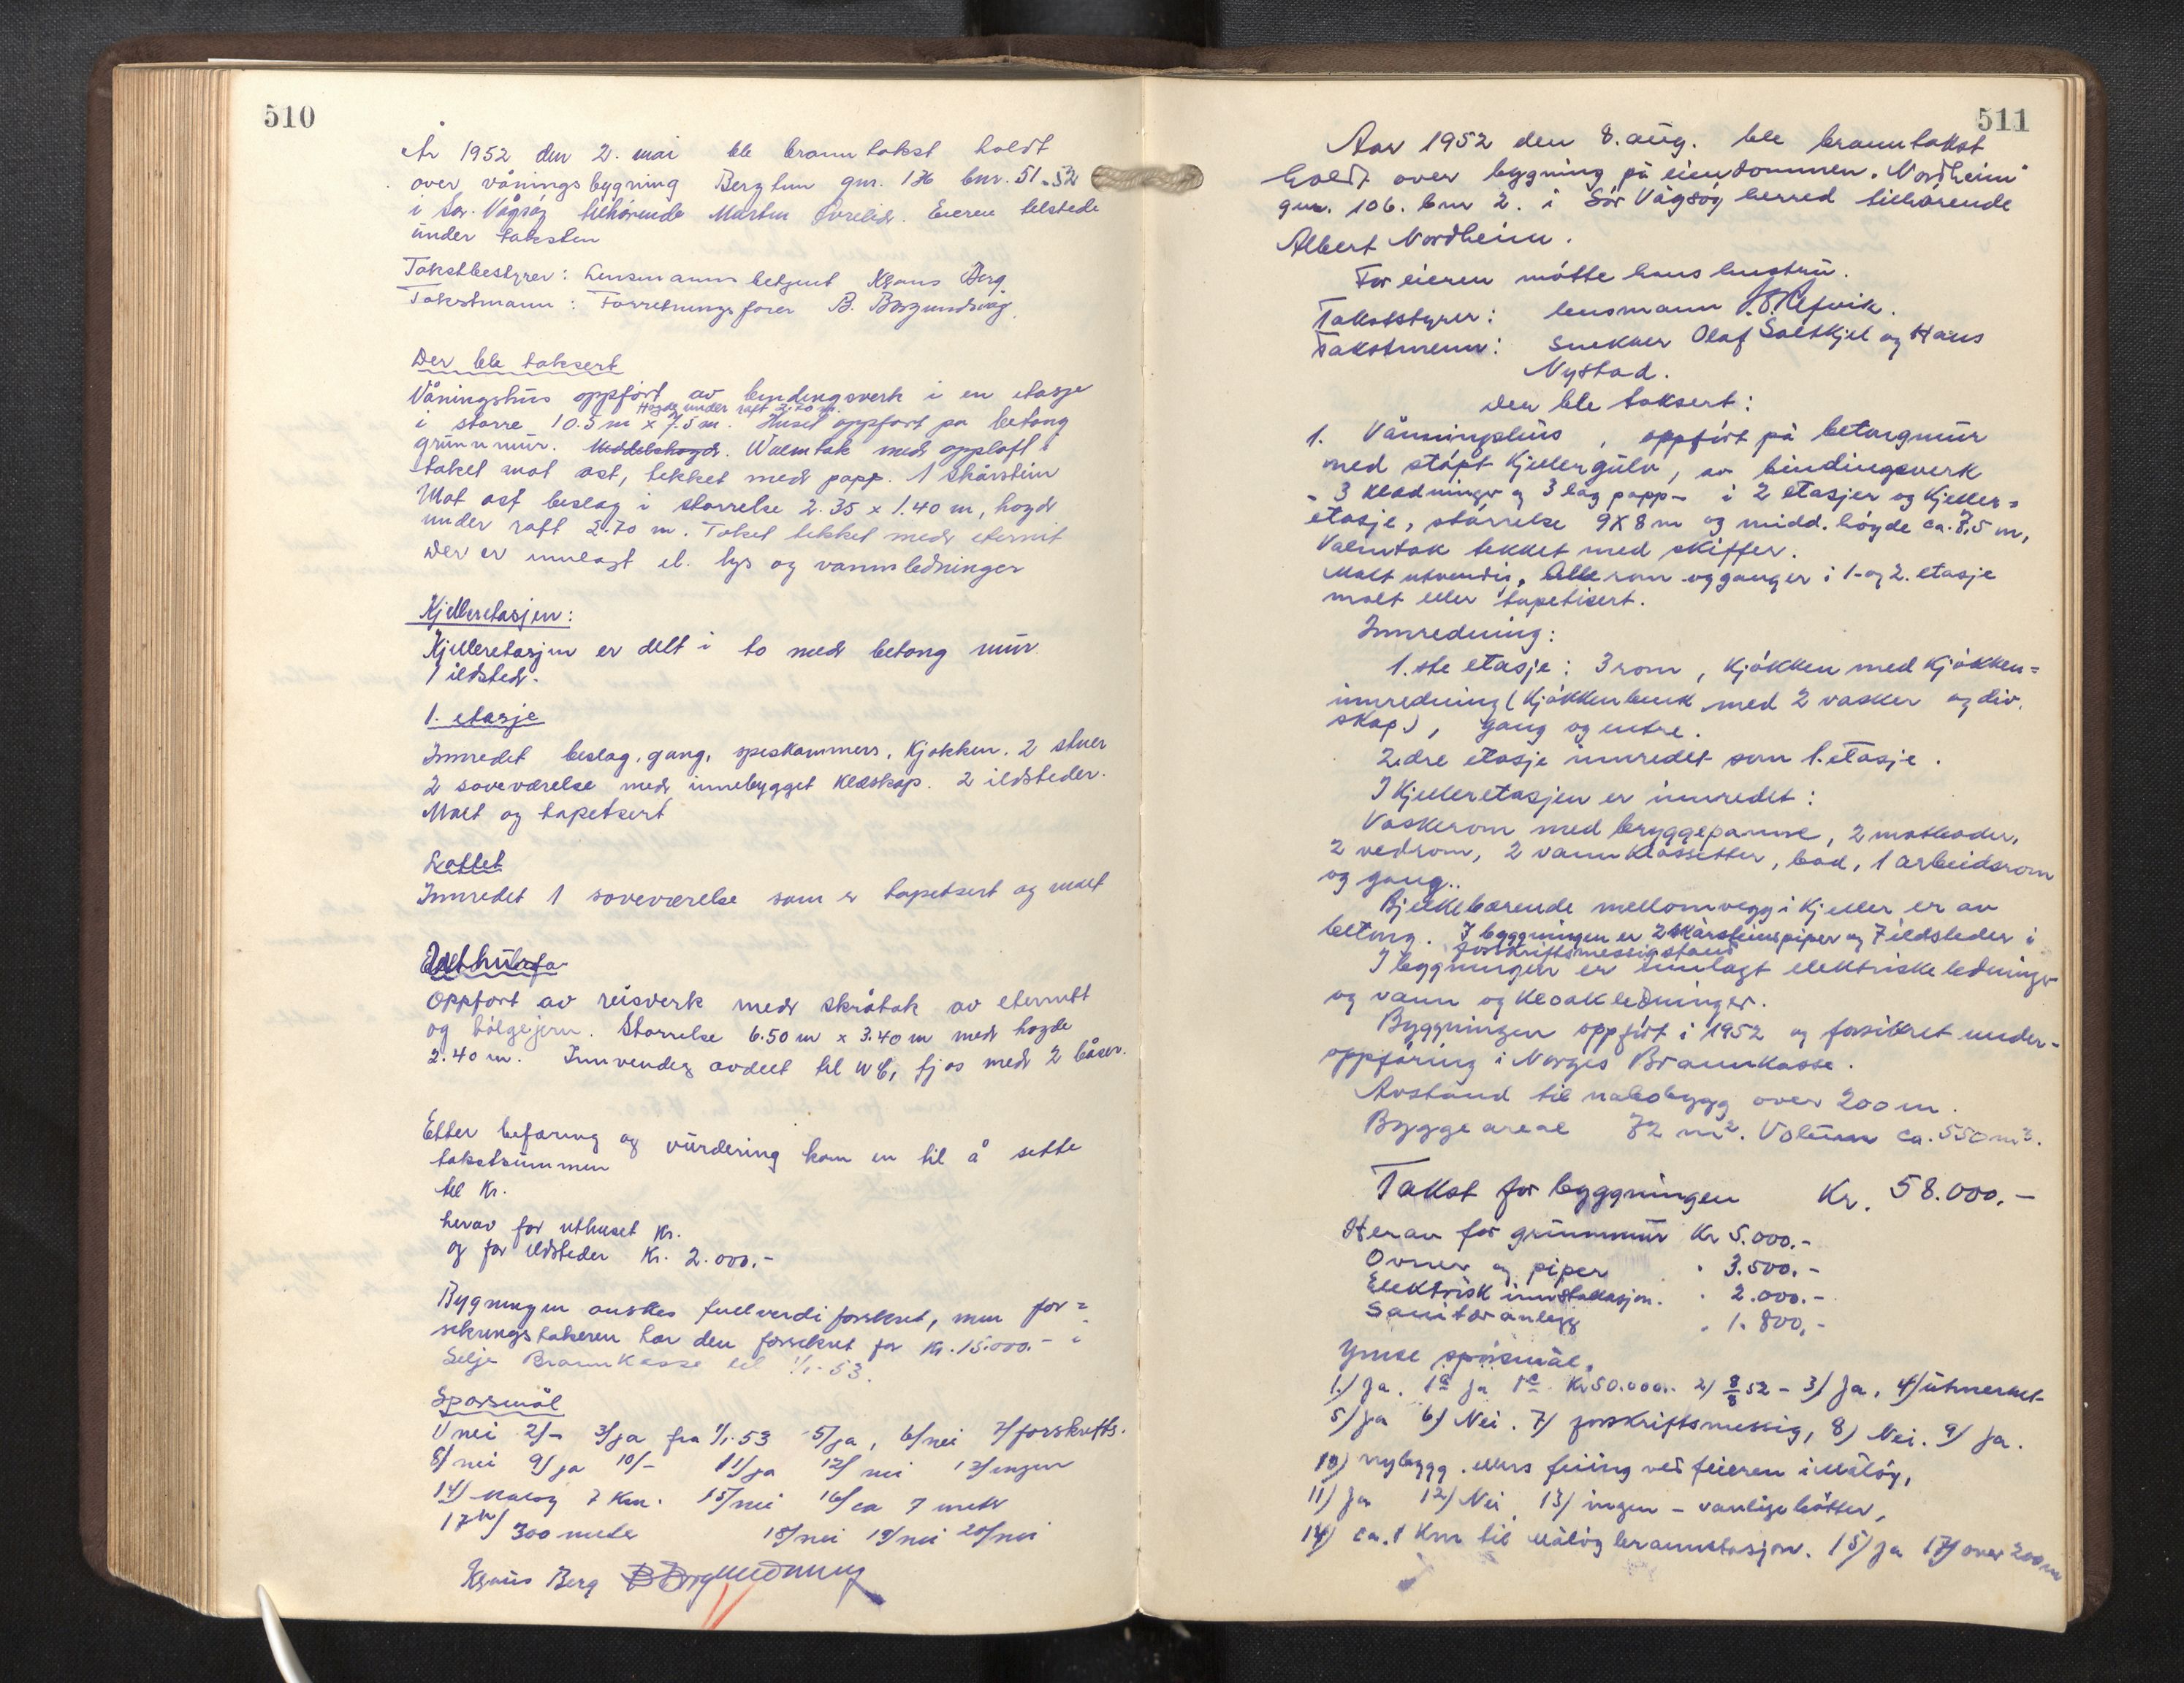 510
År 1952 den 2. mai ble branntakst holdt
over våningsbygning Bergtun gnr. 136 bnr. 51-52
i Sør. Vågsøy tilhørende Martin Eieren tilstede
under taksten
Takstbestyrer: Lensmannsbetjent Klaus Berg
Takstmann: Forretningsfører B. Borgundvåg.
Der ble taksert
Våningshus oppført av bindingsverk i en etasje
Høgde under raft 2.70 m.
i større 10.5 m x 7.5 m. Huset oppført på betong
grunnmur. Middelshøgd. Walmtak med opploft i
taket mot øst, tekket med papp. 1 skårstein
Mot øst beslag i størrelse 2.35 x 1.40 m, høgd
under raft 2.70 m. Taket tekket med eternit
Der er innlagt el. lys og vannledninger
Kjelleretasjen:
Kjelleretasjen er delt i to med betong mur
1 ildsted.
1. etasje
Innredet beslag, gang, speskammers, Kjøkken, 2 stuer
2 soveværelse med innebygget klæskap. 2 ildsteder.
Malt og tapetsert
Loftet
Innredet 1 soveværelse som er tapetsert og malt
Uthus
Oppført av reisverk med skråtak av eternitt
og bølgejern. Størrelse 6.50 m x 3.40 m med høgde
2.40 m. Innvendig avdelt til WC, fjøs med 2 båser.
Etter befaring og vurdering kom en til å sette
takstsummen
til Kr.
herav for uthuset Kr.
og for ildsteder Kr. 2.000.-
Bygningen ønskes fullverdiforsikret, men for=
sikringstakeren har den forsikret for Kr. 15.000.- i
Selje Brannkasse til 1/1-53.
Spørsmål
1/ nei 2/- 3/ja fra 1/1-53 5/ja, 6/nei 7/forskrifts.
8/ nei 9/ ja 10/- 11/ja 12/ nei 13/ingen
14/ Måløy 7 Km. 15/nei 16/ ca 7 meter
17/ 300 meter 18/nei 19/nei 20/nei
Klaus Berg B Borgundvåg
511
Aar 1952 den 8. aug. ble branntakst
holdt over bygning på eiendommen "Nordheim"
gnr. 106. bnr 2. i Sør Vågsøy herred tilhørende
Albert Nordheim.
For eieren møtte hans hustru.
Takststyrer: lensmann Refvik.
Takstmenn: Snekker Olaf Saltkjel og Hans
Nystad.
Der ble taksert:
1. Våningshus, oppført på betongmur
med støpt Kjellergulv, av bindingsverk
- 3 kledninger og 3 lag papp- i 2 etasjer og Kjeller=
etasje, størrelse 9x8 m og midd. høyde ca. 7,5 m,
Valmtak tekket med skiffer.
Malt utvendig, Alle rom og ganger i 1. og 2. etasje
malt eller tapetisert.
Innredning:
1.ste etasje: 3 rom, Kjøkken med Kjøkken=
innredning (Kjøkkenbenk med 2 vasker og div.
skap), gang og entre.
2.dre etasje innredet som 1. etasje.
I Kjelleretasjen er innredet:
Vaskerom med bryggepanne, 2 matboder,
2 vedrom, 2 vannklossetter, bad, 1 arbeidsrom
og gang..
Bjelkebærende mellomvegg i Kjeller er av
betong. I byggningen er 2 skårsteinspiper og 7 ildsteder i
forskriftsmessig stand
I byggningen er innlagt elektriske ledninger
og vann og Kloakledninger.
Byggningen oppført i 1952 og forsikret under-
oppføring i Norges Brannkasse.
Avstand til nabobygg over 200 m.
Bygge areal 72 m². Volum ca. 550 m³.
Takst for byggningen Kr. 58.000.-
Herav for grunnmur Kr 5.000.-
Ovner og piper " 3.500.-
Elektrisk innstallasjon. " 2.000.-
Sanitæranlegg " 1.800,-
Ymse spørsmål.
1./ Ja. 1a ja 1c Kr 50.000.- 2/ 8/8 52 - 3/ Ja, 4/ utmerket
5/ Ja 6/ Nei. 7/ forskriftsmessig, 8/ Nei. 9/ Ja.
10/ nybygg. ellers feiing ved feieren i Måløy,
11/ Ja 12/ Nei 13/ ingen - vanlige bøtter,
14/ ca. 1 Km til Måløy brannstasjon. 15/ Ja 17/ over 200 m